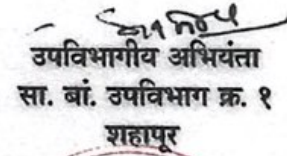 उपविभागीय अभियंता
सा. बां. उपविभाग क्र. १
शहापूर